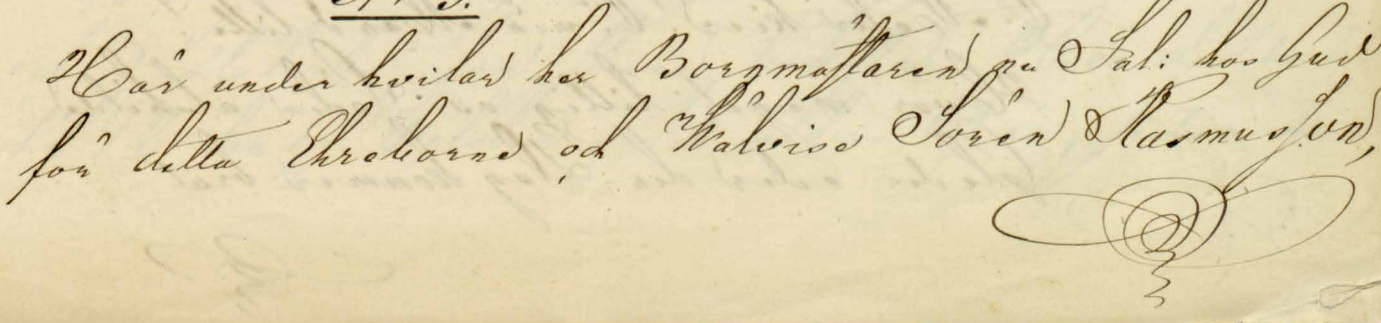 Här under hvilar her Borgmästaren nu Sal: hos Gud
för detta Ehreborne och Wälvise Sören Rasmusson,